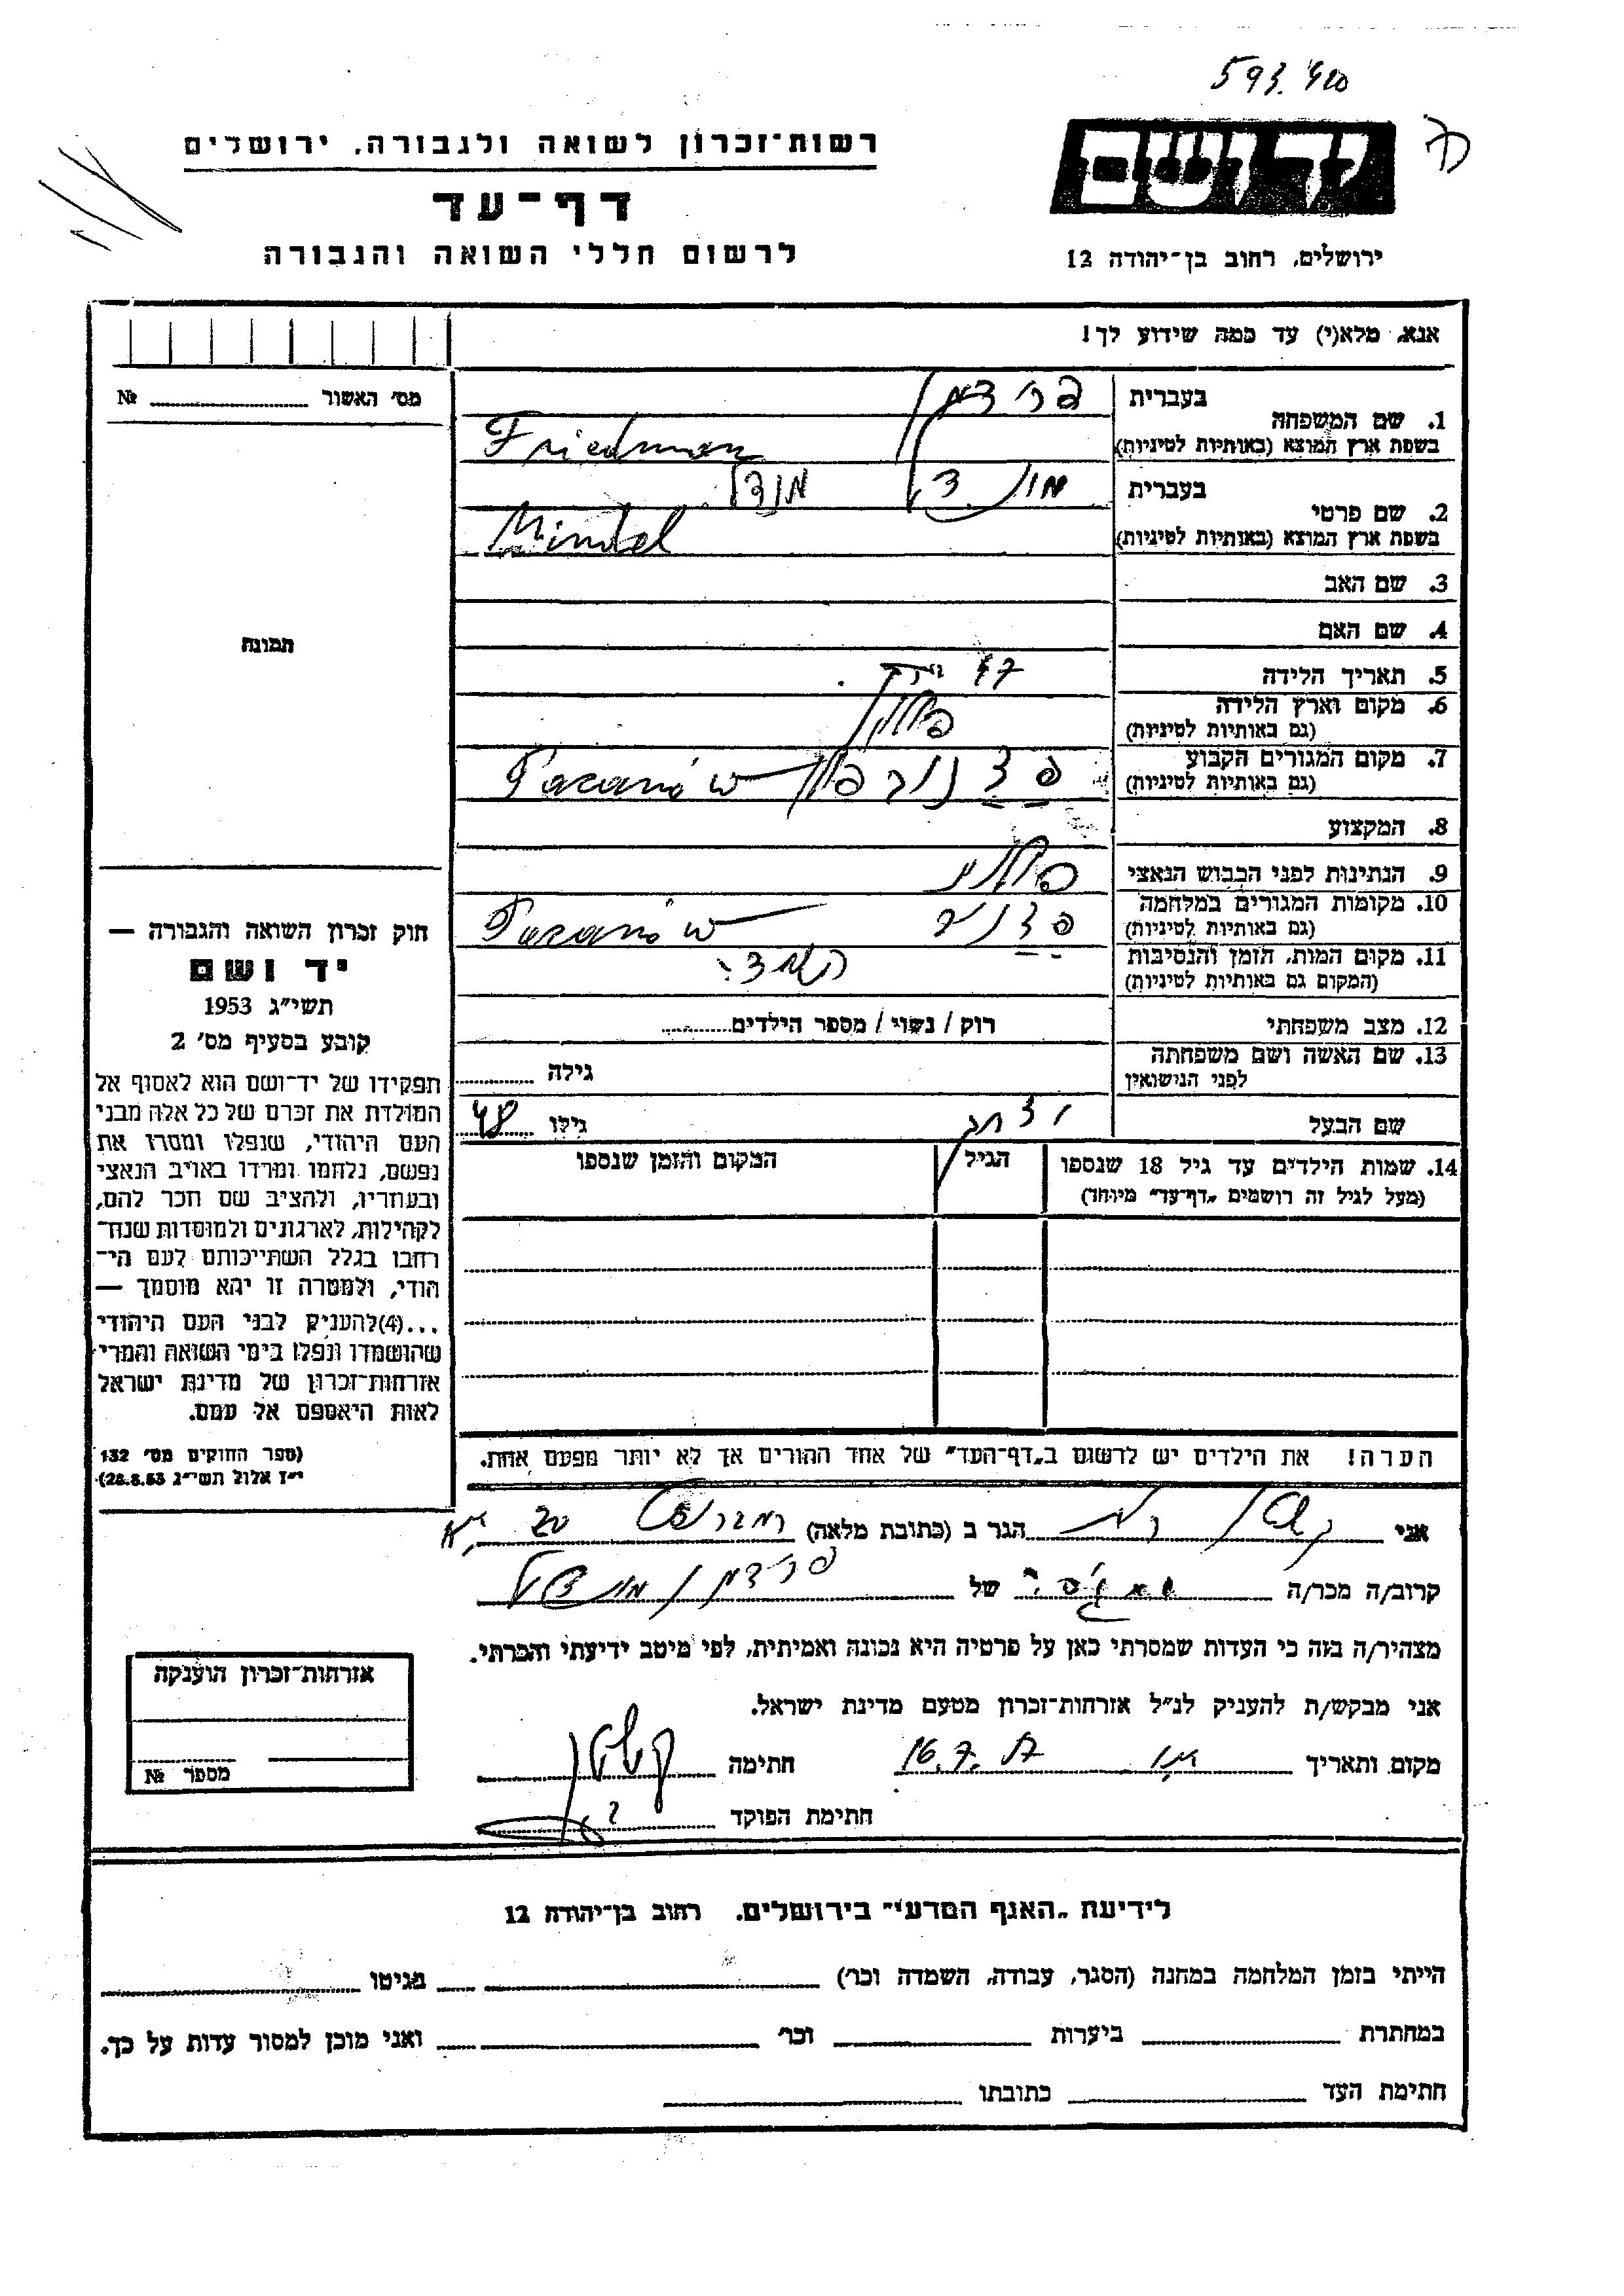 593.410
יד ושם
רשות־זכרון לשואה ולגבורה, ירושלים
דף־עד
לרשום חללי השואה והגבורה
ירושלים, רחוב בן־יהודה 12
אנא, מלא(י) עד כמה שידוע לך!
מס׳ האשור № 
תמונה
1. שם המשפחה
בעברית פרידמן
בשפת ארץ המוצא (באותיות לטיניות) Friedman
2. שם פרטי
בעברית מינדל
בשפת ארץ המוצא (באותיות לטיניות) Mindel
3. שם האב
4. שם האם
5. תאריך הלידה 47
6. מקום וארץ הלידה פולין
(גם באותיות לטיניות)
7. מקום המגורים הקבוע פצנוב פולין Pacanów
(גם באותיות לטיניות)
8. המקצוע
9. הנתינות לפני הכבוש הנאצי פולני
10. מקומות המגורים במלחמה פצנוב Pacanów
(גם באותיות לטיניות)
11. מקום המות, הזמן והנסיבות
(המקום גם באותיות לטיניות)
12. מצב משפחתי רוק / נשוי / מספר הילדים
13. שם האשה ושם משפחתה
לפני הנישואין
גילה
שם הבעל גילו 48
14. שמות הילדים עד גיל 18 שנספו
(מעל לגיל זה רושמים „דף־עד” מיוחד)
הגיל
המקום והזמן שנספו
הערה! את הילדים יש לרשום ב„דף־העד” של אחד ההורים אך לא יותר מפעם אחת.
חוק זכרון השואה והגבורה —
יד ושם
תשי״ג 1953
קובע בסעיף מס׳ 2
תפקידו של יד־ושם הוא לאסוף אל
המולדת את זכרם של כל אלה מבני
העם היהודי, שנפלו ומסרו את
נפשם, נלחמו ומרדו באויב הנאצי
ובעוזריו, ולהציב שם וזכר להם,
לקהילות, לארגונים ולמוסדות שנח־
רבו בגלל השתייכותם לעם הי־
הודי, ולמטרה זו יהא מוסמך —
...(4)להעניק לבני העם היהודי
שהושמדו ונפלו בימי השואה והמרי
אזרחות־זכרון של מדינת ישראל
לאות היאספם אל עמם.
(ספר החוקים מס׳ 132
י״ז אלול תשי״ג 28.8.53)
אני הגר ב (כתובת מלאה)
קרוב/ה מכר/ה של פרידמן מינדל
מצהיר/ה בזה כי העדות שמסרתי כאן על פרטיה היא נכונה ואמיתית, לפי מיטב ידיעתי והכרתי.
אני מבקש/ת להעניק לנ״ל אזרחות־זכרון מטעם מדינת ישראל.
מקום ותאריך 16.7. חתימה
חתימת הפוקד
אזרחות־זכרון הוענקה
מספר №
לידיעת „האגף המדעי” בירושלים, רחוב בן־יהודה 12
הייתי בזמן המלחמה במחנה (הסגר, עבודה, השמדה וכו׳) בגיטו
במחתרת ביערות וכו׳ ואני מוכן למסור עדות על כך.
חתימת העד כתובתו